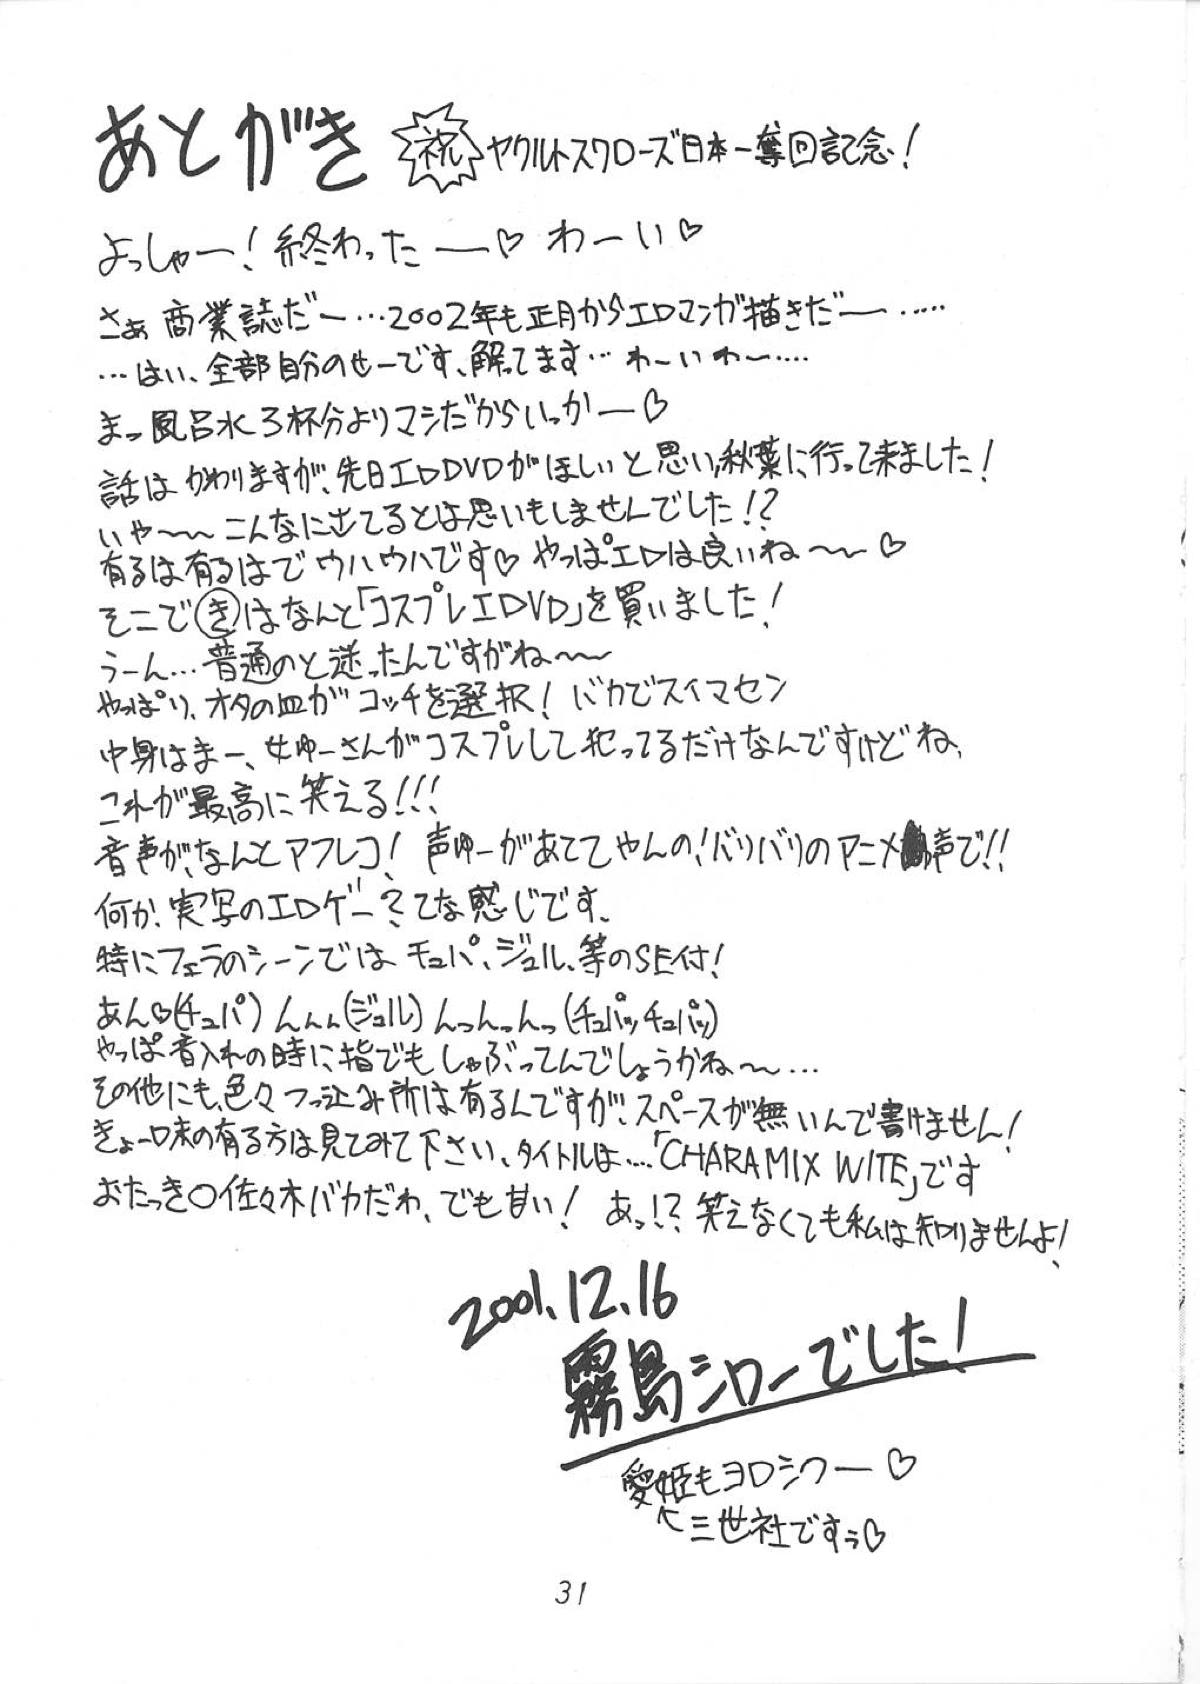 あとがき 祝 ヤクルトスワローズ日本一奪回記念!
よっしゃー!終わったー♡ わーい♡
さぁ商業誌だー…2002年も正月からエロマンガ描きだー……
…はい、全部自分のせーです、解ってます… わーいわー…
まっ風呂水3杯分よりマシだからいっかー♡
話はかわりますが、先日エロDVDがほしいと思い、秋葉に行って来ました!
いや〜〜こんなに出てるとは思いもしませんでした!?
有るは有るはでウハウハです♡ やっぱエロは良いね〜〜♡
そこでⓀはなんと「コスプレエロDVD」を買いました!
うーん…普通のと迷ったんですがね〜〜
やっぱり、オタの血がコッチを選択! バカでスイマセン
中身はまー、女ゆーさんがコスプレして犯ってるだけなんですけどね、
これが最高に笑える!!!
音声が、なんとアフレコ! 声ゆーがあててやんの!バリバリのアニメ声で!!
何か、実写のエロゲー?てな感じです、
特にフェラのシーンではチュパ、ジュル、等のSE付!
あん♡(チュパ)んんん(ジュル)んっんっんっ(チュパッチュパッ)
やっぱ音入れの時に指でもしゃぶってんでしょうかね〜〜…
その他にも、色々つっ込み所は有るんですが、スペースが無いんで書けません!
きょー味の有る方は見てみて下さい、タイトルは…「CHARAMIX WITE」です
おたっき〇佐々木バカだわ、でも甘い! あっ!?笑えなくても私は知りませんよ!
2001.12.16
霧島シローでした!
愛姫もヨロシクー♡
三世社ですぅ♡
31